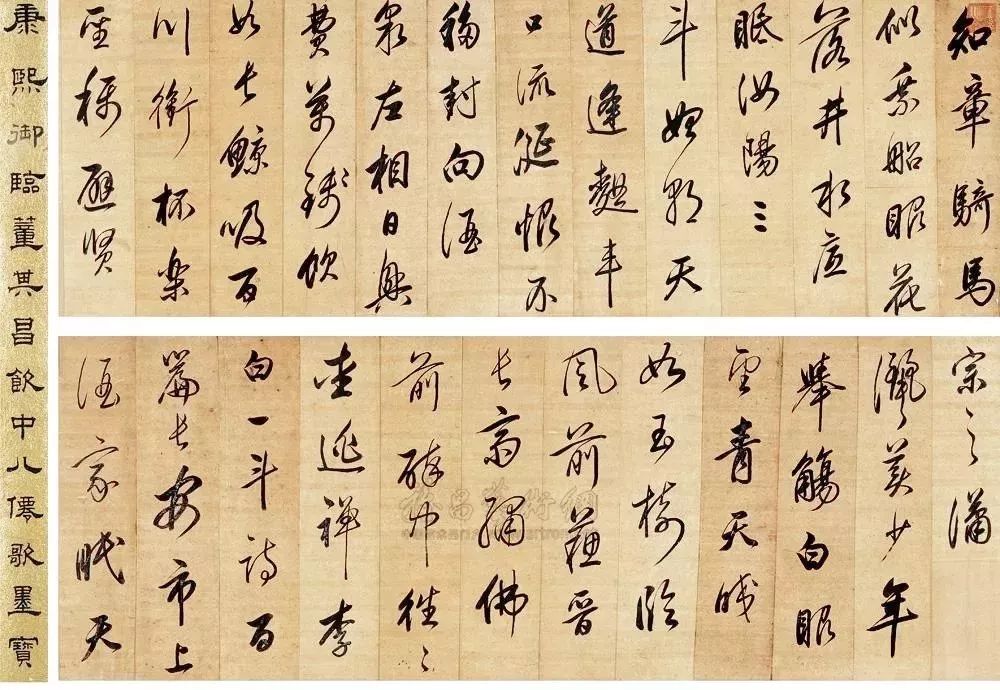 知章騎馬
似乘船眼花
落井水底
眠汝陽三
斗始朝天
道逢麴車
口流涎恨不
移封向酒
泉左相日興
費萬錢飲
如長鯨吸百
川銜杯樂
聖稱避賢
宗之瀟
灑美少年
舉觴白眼
望青天皎
如玉樹臨
風前蘇晉
長齋繡佛
前醉中往〻
愛逃禪李
白一斗詩百
篇長安市上
酒家眠天
康熙御臨董其昌飲中八僊歌墨寶